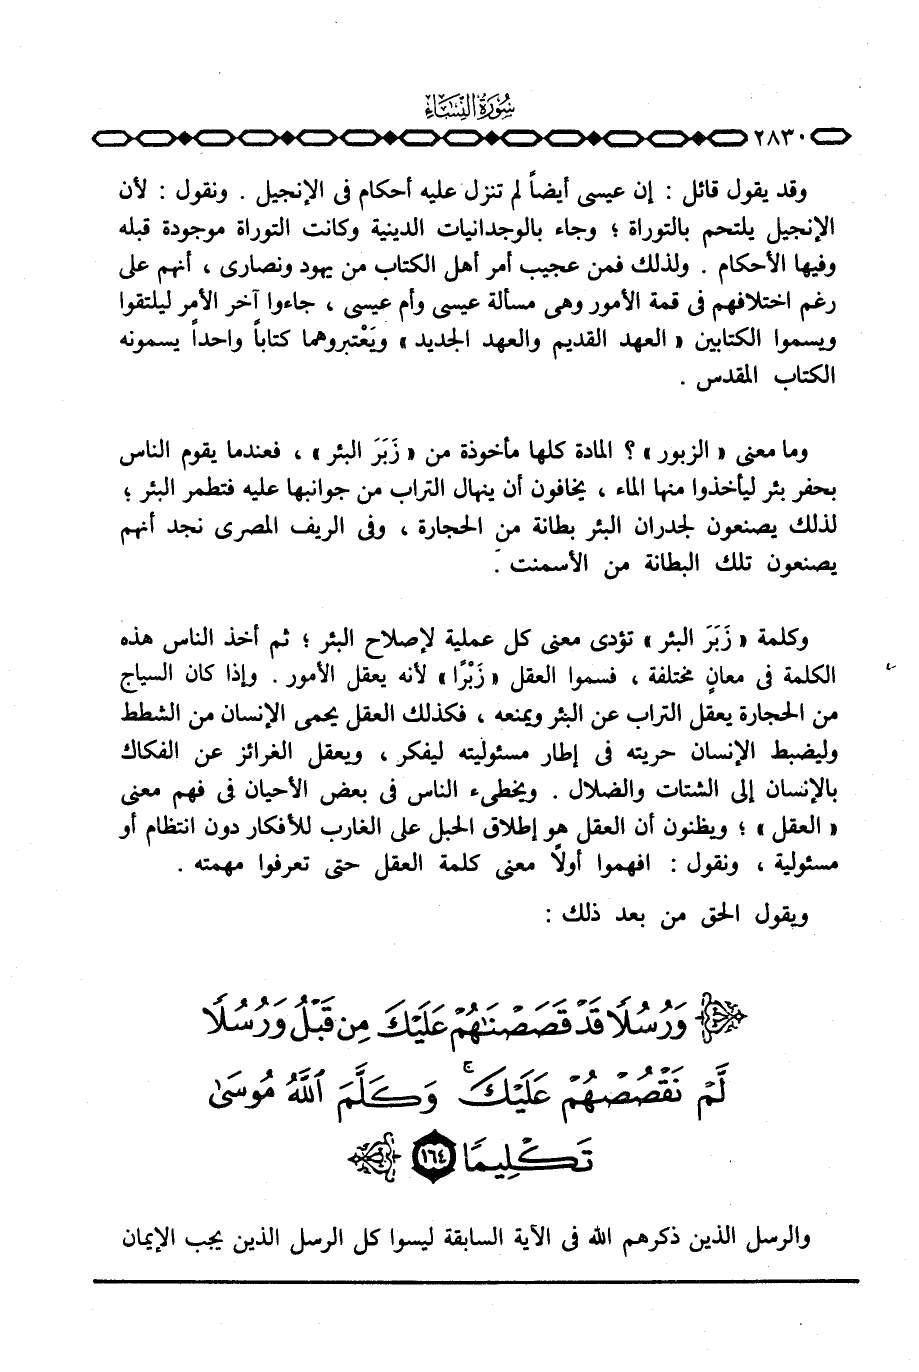 سُورَةُ النِّسَاءِ
٢٨٣٠
وقد يقول قائل : إن عيسى أيضاً لم تنزل عليه أحكام فى الإنجيل . ونقول : لأن
الإنجيل يلتحم بالتوراة ؛ وجاء بالوجدانيات الدينية وكانت التوراة موجودة قبله
وفيها الأحكام . ولذلك فمن عجيب أمر أهل الكتاب من يهود ونصارى ، أنهم على
رغم اختلافهم فى قمة الأمور وهى مسألة عيسى وأم عيسى ، جاءوا آخر الأمر ليلتقوا
ويسموا الكتابين « العهد القديم والعهد الجديد » ويَعْتبروهما كتاباً واحداً يسمونه
الكتاب المقدس .
وما معنى « الزبور » ؟ المادة كلها مأخوذة من « زَبَرَ البئر » ، فعندما يقوم الناس
بحفر بئر ليأخذوا منها الماء ، يخافون أن ينهال التراب من جوانبها عليه فتطمر البئر ؛
لذلك يصنعون لجدران البئر بطانة من الحجارة ، وفى الريف المصرى نجد أنهم
يصنعون تلك البطانة من الأسمنت .
وكلمة « زَبَرَ البئر » تؤدى معنى كل عملية لإصلاح البئر ؛ ثم أخذ الناس هذه
الكلمة فى معانٍ مختلفة ، فسموا العقل « زَبْرًا » لأنه يعقل الأمور . وإذا كان السياج
من الحجارة يعقل التراب عن البئر ويمنعه ، فكذلك العقل يحمى الإنسان من الشطط
وليضبط الإنسان حريته فى إطار مسئوليته ليفكر ، ويعقل الغرائز عن الفكاك
بالإنسان إلى الشتات والضلال . ويخطىء الناس فى بعض الأحيان فى فهم معنى
« العقل » ؛ ويظنون أن العقل هو إطلاق الحبل على الغارب للأفكار دون انتظام أو
مسئولية ، ونقول : افهموا أولاً معنى كلمة العقل حتى تعرفوا مهمته .
ويقول الحق من بعد ذلك :
وَرُسُلًا قَدْ قَصَصْنَٰهُمْ عَلَيْكَ مِن قَبْلُ وَرُسُلًا
لَّمْ نَقْصُصْهُمْ عَلَيْكَ ۚ وَكَلَّمَ ٱللَّهُ مُوسَىٰ
تَكْلِيمًا ١٦٤
والرسل الذين ذكرهم الله فى الآية السابقة ليسوا كل الرسل الذين يجب الإيمان